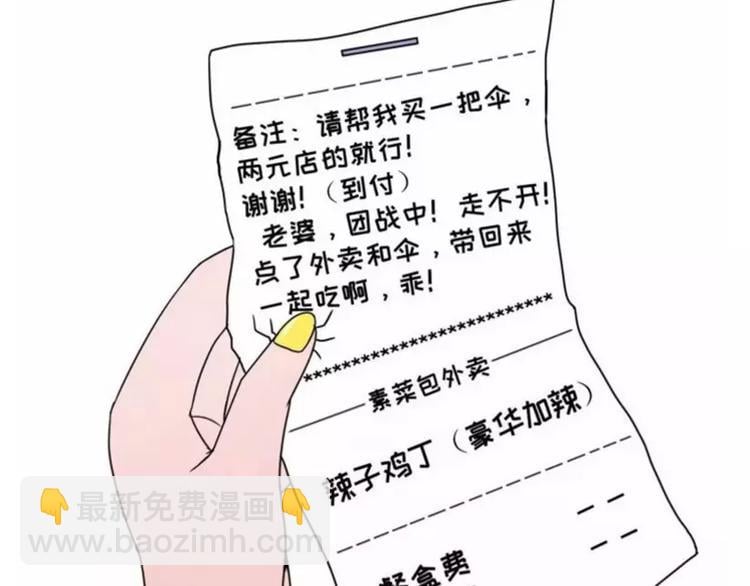 备注：请帮我买一把伞，
两元店的就行！
谢谢！（到付）
老婆，团战中！走不开！
点了外卖和伞，带回来
一起吃啊，乖！
*****************************
素菜包外卖
辣子鸡丁（豪华加辣）
餐盒费
👇最新免费漫画👇
www.baozimh.com